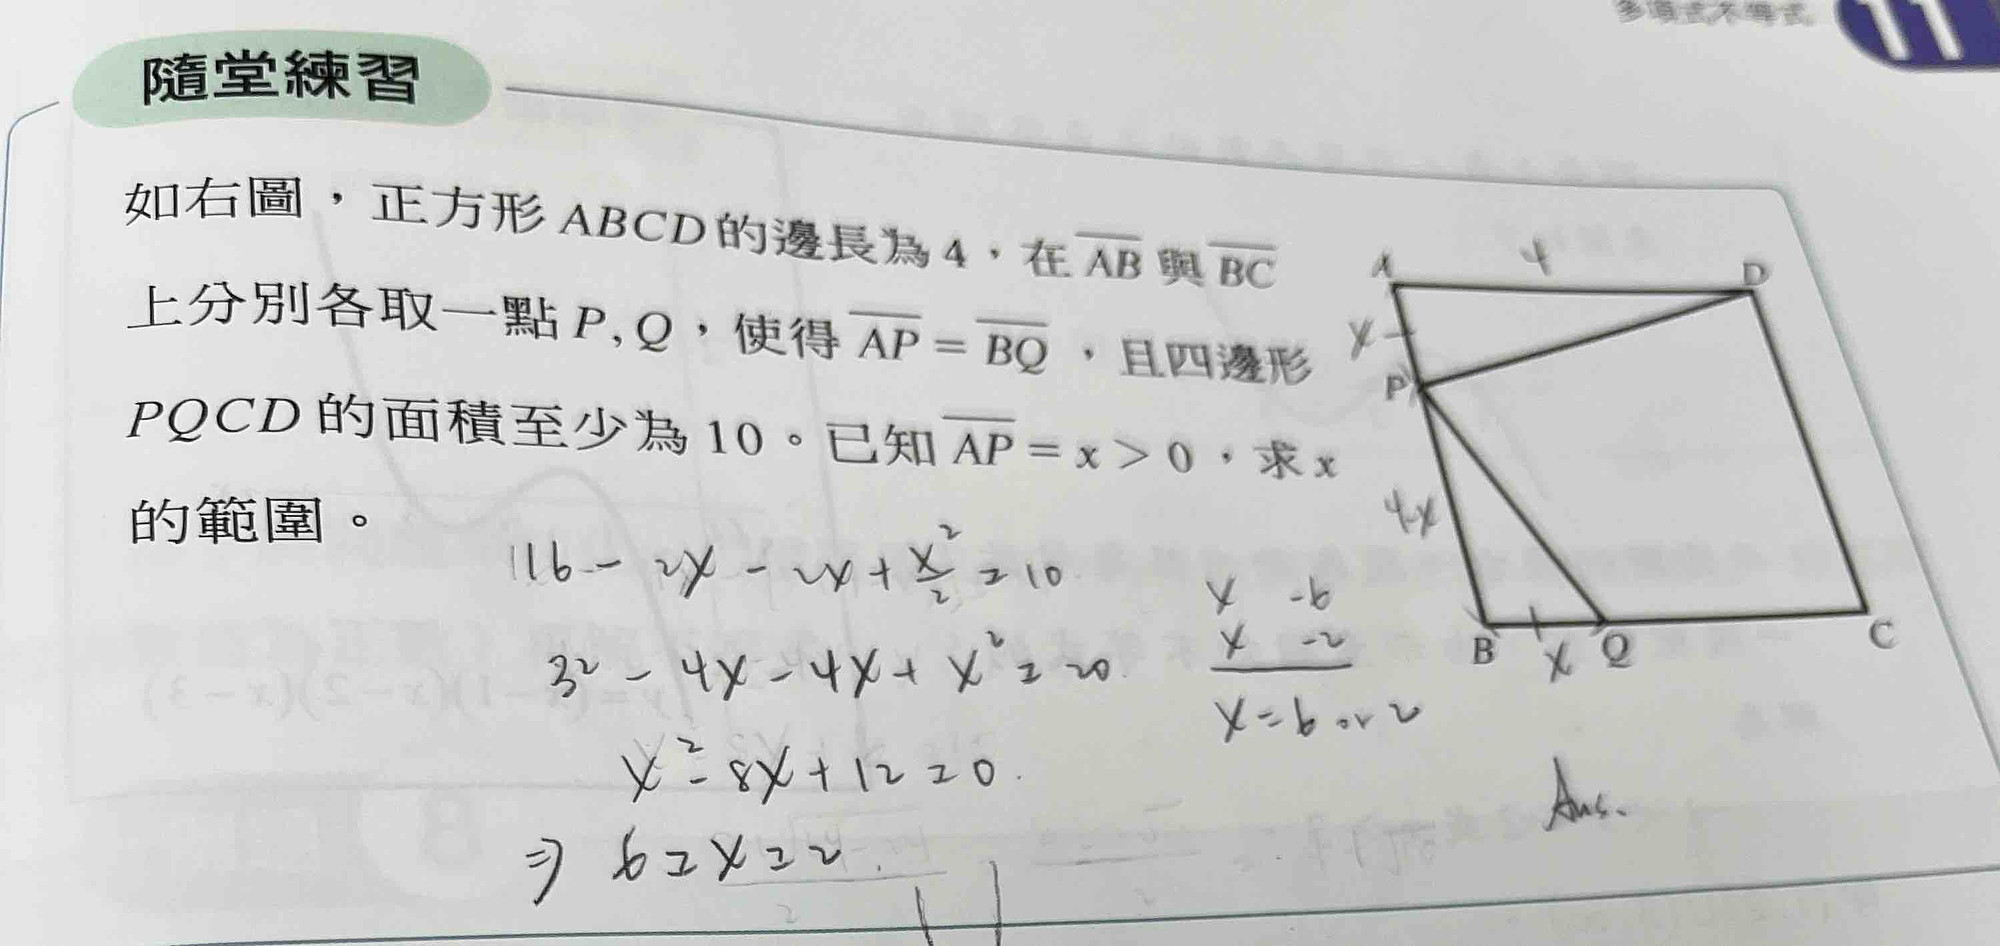 多項式不等式 11
隨堂練習
如右圖，正方形 ABCD 的邊長為 4，在 AB 與 BC
上分別各取一點 P, Q，使得 AP = BQ，且四邊形
PQCD 的面積至少為 10。已知 AP = x > 0，求 x
的範圍。
A 4 D
x
P
4-x
B x Q C
16 - 2x - 2x + x²/2 = 10
32 - 4x - 4x + x² = 20
x² - 8x + 12 = 0
x -6
x -2
x = 6 or 2
Ans.